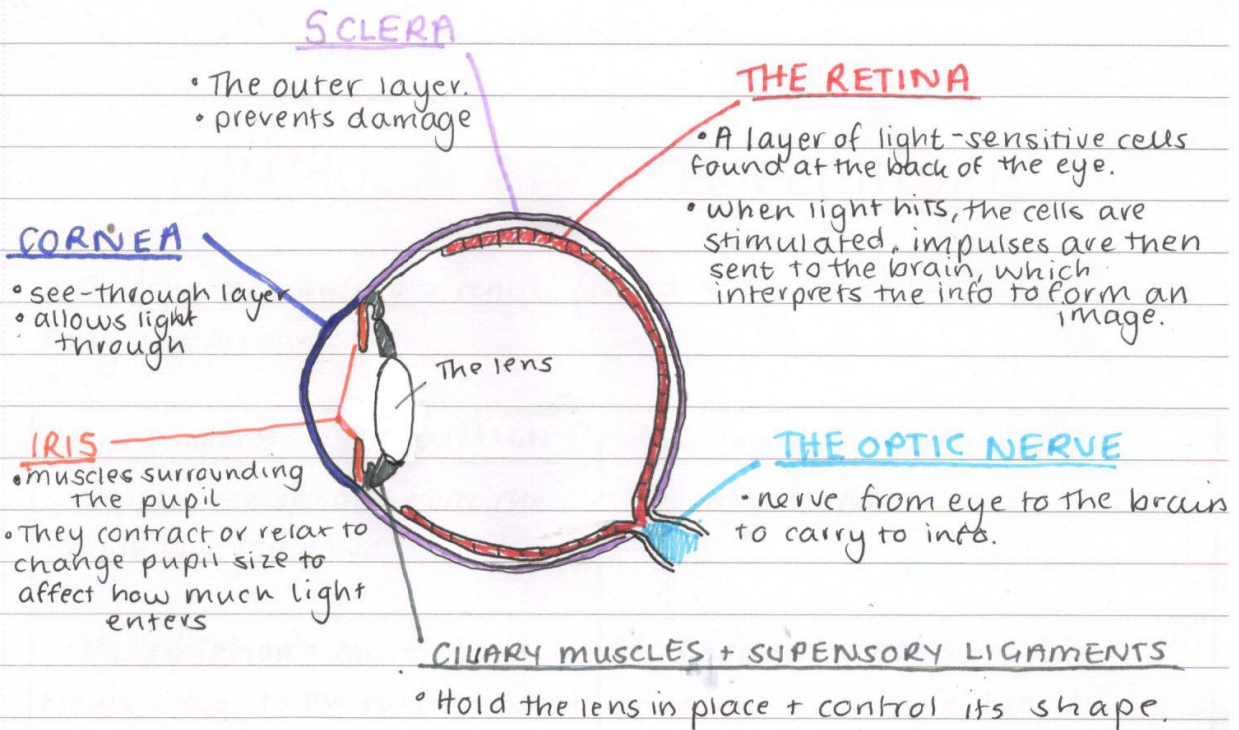 SCLERA
• The outer layer.
• prevents damage
THE RETINA
• A layer of light-sensitive cells
found at the back of the eye.
• when light hits, the cells are
stimulated. impulses are then
sent to the brain, which
interprets the info to form an
image.
CORNEA
• see-through layer
• allows light
through
The lens
IRIS
• muscles surrounding
The pupil
• They contract or relax to
change pupil size to
affect how much light
enters
THE OPTIC NERVE
• nerve from eye to the brain
to carry to info.
CILIARY MUSCLES + SUPENSORY LIGAMENTS
• Hold the lens in place + control its shape.